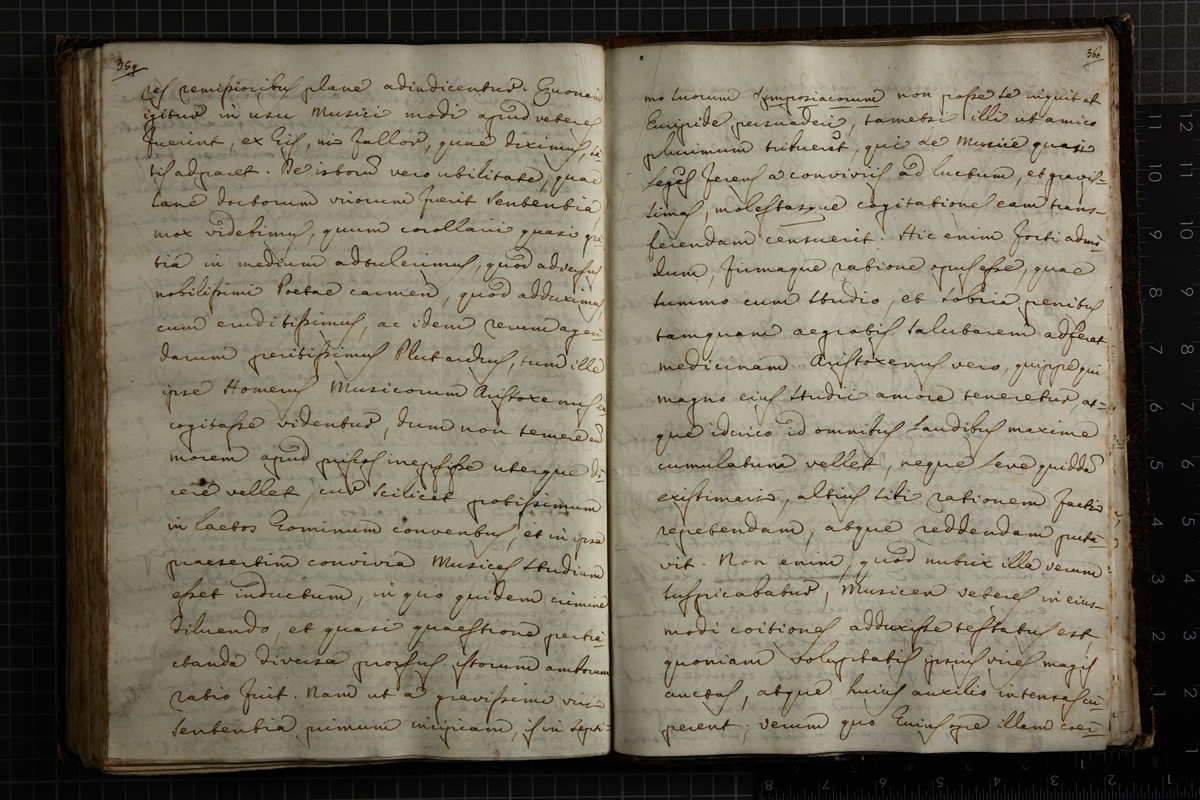 359
res remissioribus plane adiudicentur. Quonam
igitur in usu Musici modi apud veteres
fuerint, ex his, ni fallor, quae diximus, sa-
tis adparet. De istorum vero utilitate, quae
sane doctorum virorum fuerit sententia
mox videbimus, quum corollarii quasi gra-
tia in medium adtulerimus, quod adversus
nobilissimi Poetae carmen, quod adduximus,
cum eruditissimus, ac idem rerum agen-
darum peritissimus Plutarchus, tum ille
ipse Homerus Musicorum Aristoxenus ex-
cogitasse videntur, dum non temere eum
morem apud priscos inrepsisse uterque di-
cere vellet, cur scilicet potissimum
in laetos hominum conventus, et in ipsa
praesertim convivia Musices studium
esset inductum, in quo quidem crimine
diluendo, et quasi quaestione pertra-
ctanda diversa prorsus istorum amborum
ratio fuit. Nam ut a gravissimi viri
sententia primum incipiam, is in septi-
360
mo suorum Symposiacorum non posse se inquit ab
Euripide persuaderi, tametsi illi ut amico
plurimum tribuerit, qui de Musice quasi
leges ferens a conviviis ad luctum, et gravis-
simas, molestasque cogitationes eam trans-
ferendam censuerit. Hic enim forti admo-
dum, firmaque ratione opus esse, quae
summo cum studio, et sobria penitus
tamquam aegrotis salubarem adferat
medicinam. Aristoxenus vero, quippe qui
magno eius studii amore teneretur, at-
que idcirco id omnibus laudibus maxime
cumulatum vellet, neque leve quiddam
existimaris, altius sibi rationem facti
repetendam, atque reddendam puta-
vit. Non enim, quod nutrix illa verum
suspicabatur, Musicen veteres in eius-
modi coitiones adduxisse testatus est,
quoniam voluptatis ipsius vires magis
auctas, atque huius auxilio intensas cu-
perent; verum quo huius ope illam coer-